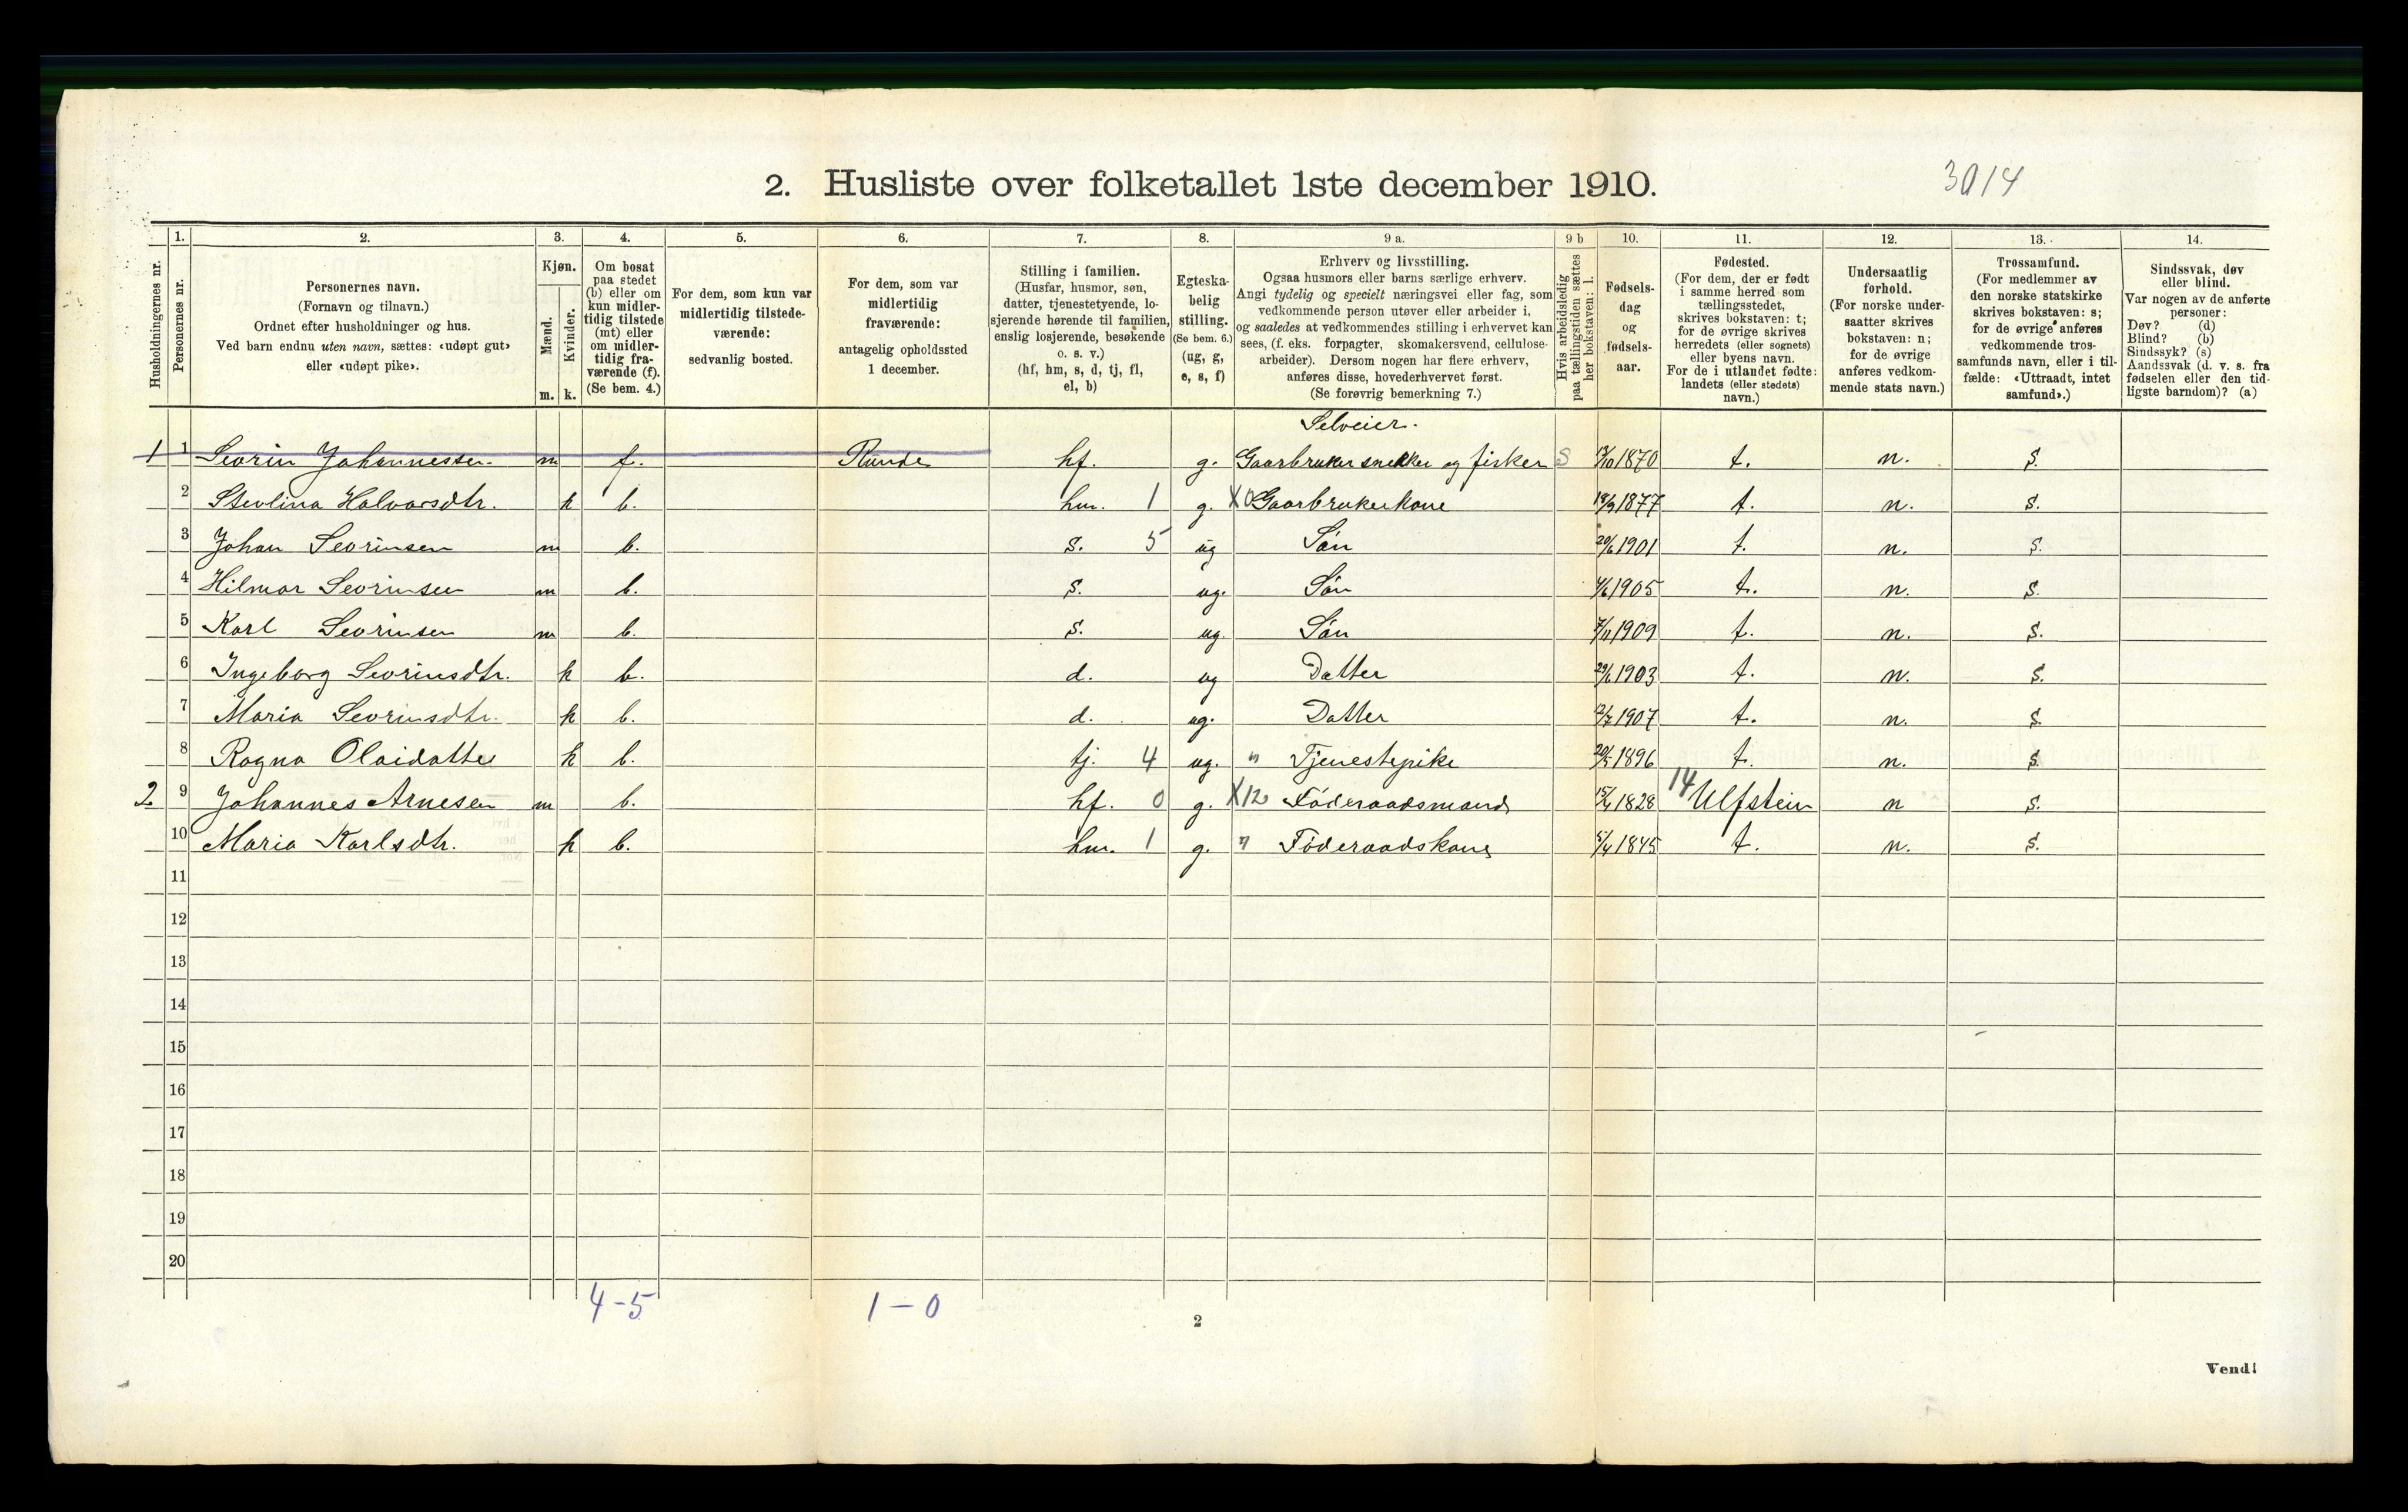 2. Husliste over folketallet 1ste december 1910.
3014
Husholdningernes nr.
1.
Personernes nr.
2.
Personernes navn.
(Fornavn og tilnavn.)
Ordnet efter husholdninger og hus.
Ved barn endnu uten navn, sættes: «udøpt gut»
eller «udøpt pike».
3.
Kjøn.
Mænd.
Kvinder.
m. k.
4.
Om bosat
paa stedet
(b) eller om
kun midler-
tidig tilstede
(mt) eller
om midler-
tidig fra-
værende (f).
(Se bem. 4.)
5.
For dem, som kun var
midlertidig tilstede-
værende:
sedvanlig bosted.
6.
For dem, som var
midlertidig
fraværende:
antagelig opholdssted
1 december.
7.
Stilling i familien.
(Husfar, husmor, søn,
datter, tjenestetyende, lo-
sjerende hørende til familien,
enslig losjerende, besøkende
o. s. v.)
(hf, hm, s, d, tj, fl,
el, b)
8.
Egteska-
belig
stilling.
(Se bem. 6.)
(ug, g,
e, s, f)
9 a.
Erhverv og livsstilling.
Ogsaa husmors eller barns særlige erhverv.
Angi tydelig og specielt næringsvei eller fag, som
vedkommende person utøver eller arbeider i,
og saaledes at vedkommendes stilling i erhvervet kan
sees, (f. eks. forpagter, skomakersvend, cellulose-
arbeider). Dersom nogen har flere erhverv,
anføres disse, hovederhvervet først.
(Se forøvrig bemerkning 7.)
9 b
Hvis arbeidsledig
paa tællingstiden sættes
her bokstaven: l.
10.
Fødsels-
dag
og
fødsels-
aar.
11.
Fødested.
(For dem, der er født
i samme herred som
tællingsstedet,
skrives bokstaven: t;
for de øvrige skrives
herredets (eller sognets)
eller byens navn.
For de i utlandet fødte:
landets (eller stedets)
navn.)
12.
Undersaatlig
forhold.
(For norske under-
saatter skrives
bokstaven: n;
for de øvrige
anføres vedkom-
mende stats navn.)
13.
Trossamfund.
(For medlemmer av
den norske statskirke
skrives bokstaven: s;
for de øvrige anføres
vedkommende tros-
samfunds navn, eller i til-
fælde: «Uttraadt, intet
samfund».)
14.
Sindssvak, døv
eller blind.
Var nogen av de anførte
personer:
Døv? (d)
Blind? (b)
Sindssyk? (s)
Aandssvak (d. v. s. fra
fødselen eller den tid-
ligste barndom)? (a)
Selveier.
1 1 Sevrin Johannessen m f. Runde hf. g. Gaarbruker snekker og fisker S 1870 t. n. s.
2 Stevlina Halvorsdtr. k b. hm. 1 g. X0 Gaarbrukerkone 19/9 1877 t. n. s.
3 Johan Sevrinsen m b. s. 5 ug Søn 20/6 1901 t. n. s.
4 Hilmar Sevrinsen m b. s. ug. Søn 4/6 1905 t. n. s.
5 Karl Sevrinsen m b. s. ug. Søn 7/11 1909 t. n. s.
6 Ingeborg Sevrinsdtr. k b. d. ug Datter 29/6 1903 t. n. s.
7 Maria Sevrinsdtr. k b. d. ug. Datter 2/7 1907 t. n. s.
8 Ragna Olaidatter k b. tj. 4 ug. " Tjenestepike 20/5 1896 t. n. s.
2. 9 Johannes Arnesen m b. hf. 0 g. X12 Føderaadsmand 15/4 1828 14 Ulfstein n s.
10 Maria Karlsdtr. k b. hm. 1 g. " Føderaadskone 5/4 1845 t. n. s.
11
12
13
14
15
16
17
18
19
20
4-5 1-0
2
Vend!